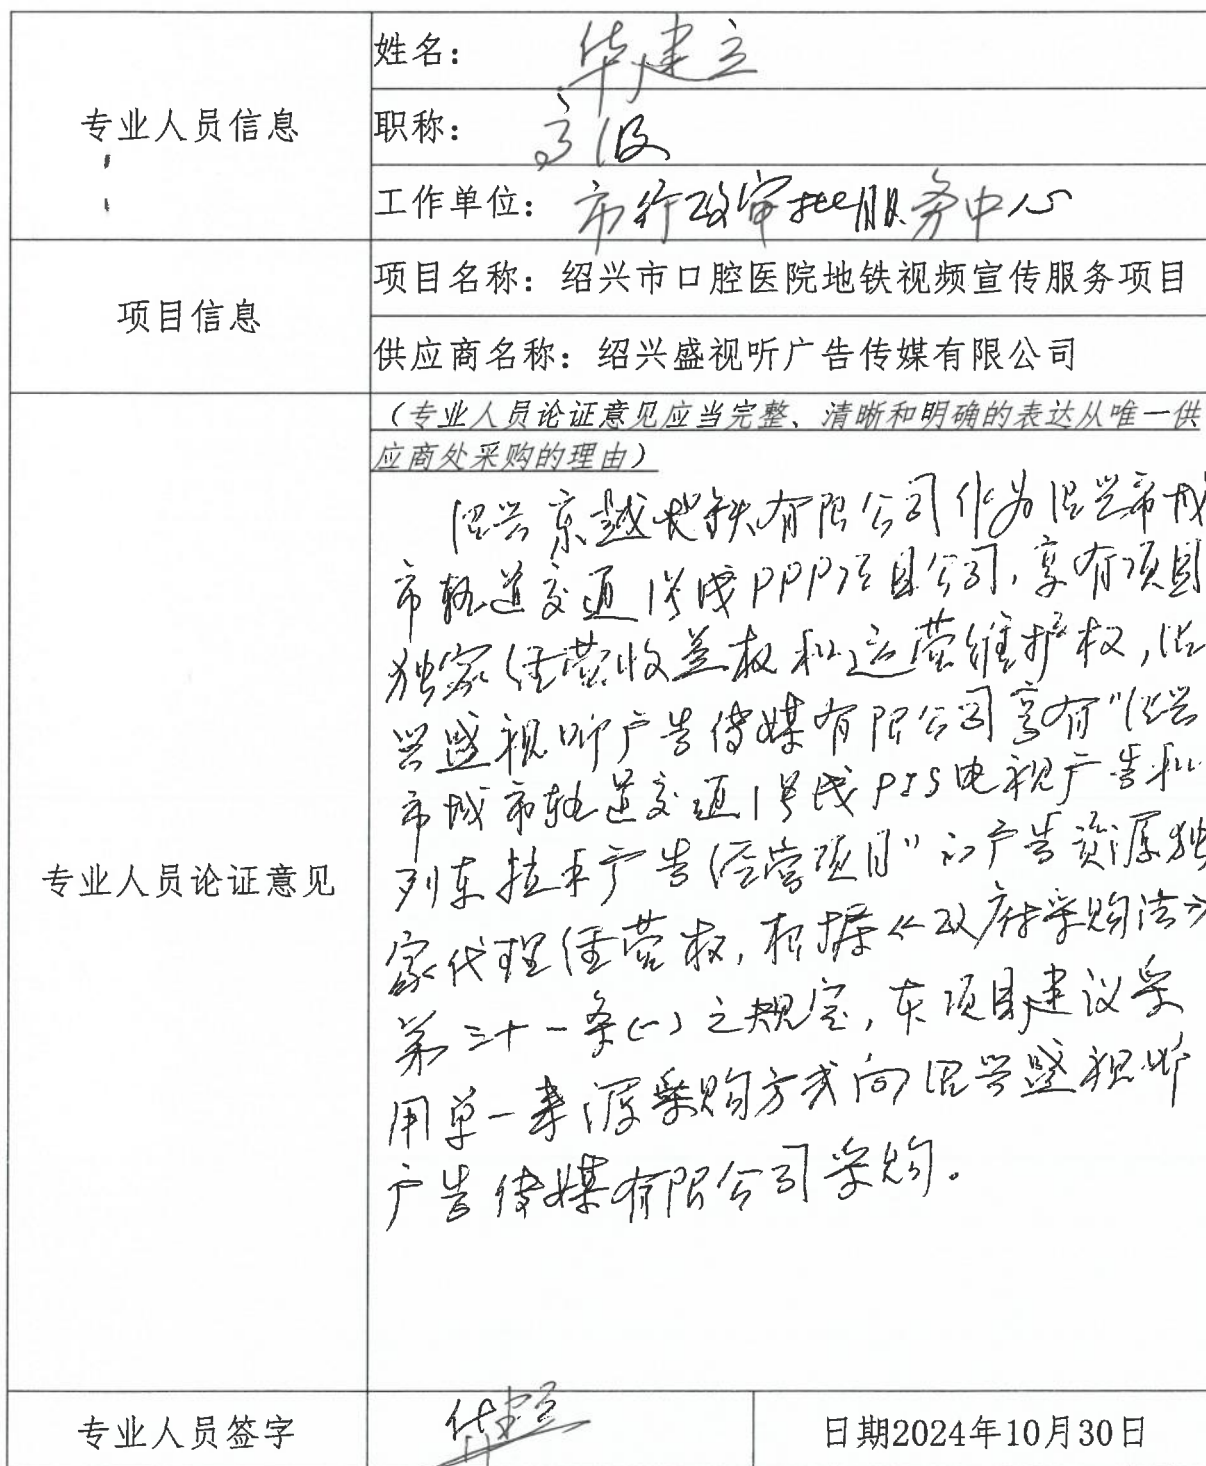 专业人员信息
姓名：华建立
职称：高级
工作单位：市行政审批服务中心
项目信息
项目名称：绍兴市口腔医院地铁视频宣传服务项目
供应商名称：绍兴盛视听广告传媒有限公司
专业人员论证意见
（专业人员论证意见应当完整、清晰和明确的表达从唯一供
应商处采购的理由）
绍兴京越地铁有限公司作为绍兴市城
市轨道交通1号线PPP项目公司，享有项目
独家经营收益权和运营维护权，绍
兴盛视听广告传媒有限公司享有“绍兴
市城市轨道交通1号线PIS电视广告和
列车拉手广告经营项目”的广告资源独
家代理经营权，根据《政府采购法》
第三十一条(一)之规定，本项目建议采
用单一来源采购方式向绍兴盛视听
广告传媒有限公司采购。
专业人员签字
华建立
日期2024年10月30日